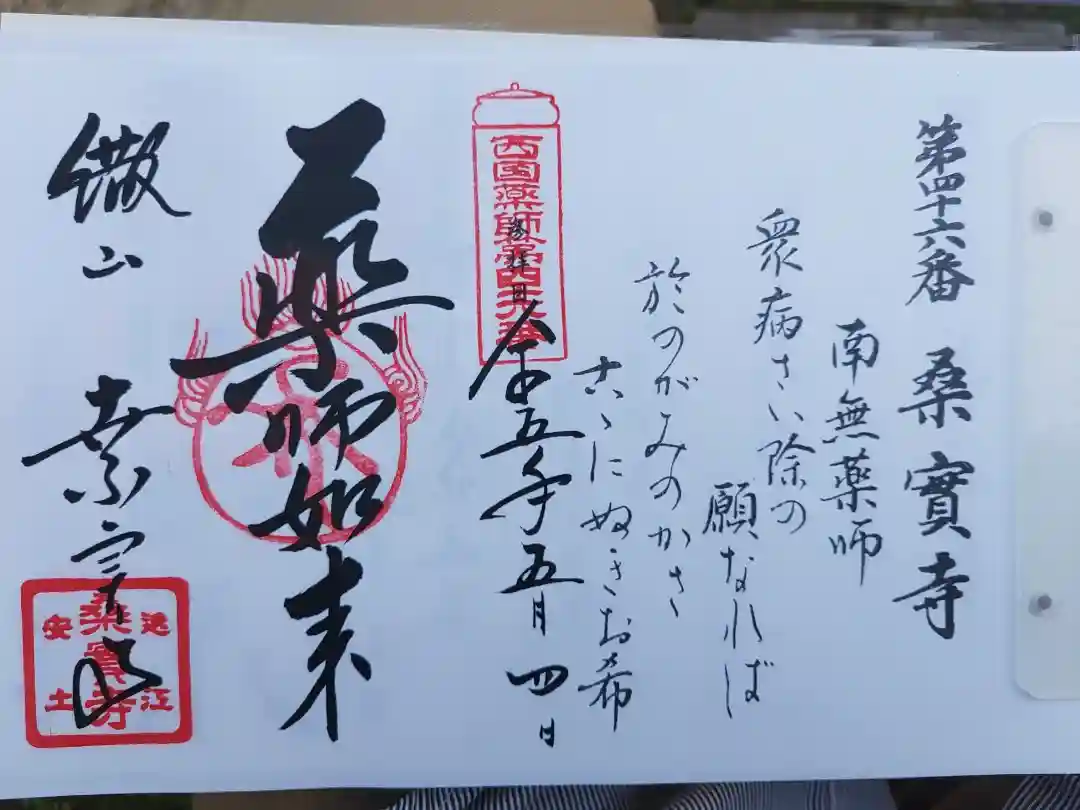 第四十六番 桑實寺
南無薬師
衆病さい除の
願なれば
於のがみのかさ
古ゝにぬきお希
令和五年五月四日
参拝日
西国薬師第四十六番
薬師如来
繖山 桑宗寺
桑實寺
近江
安土